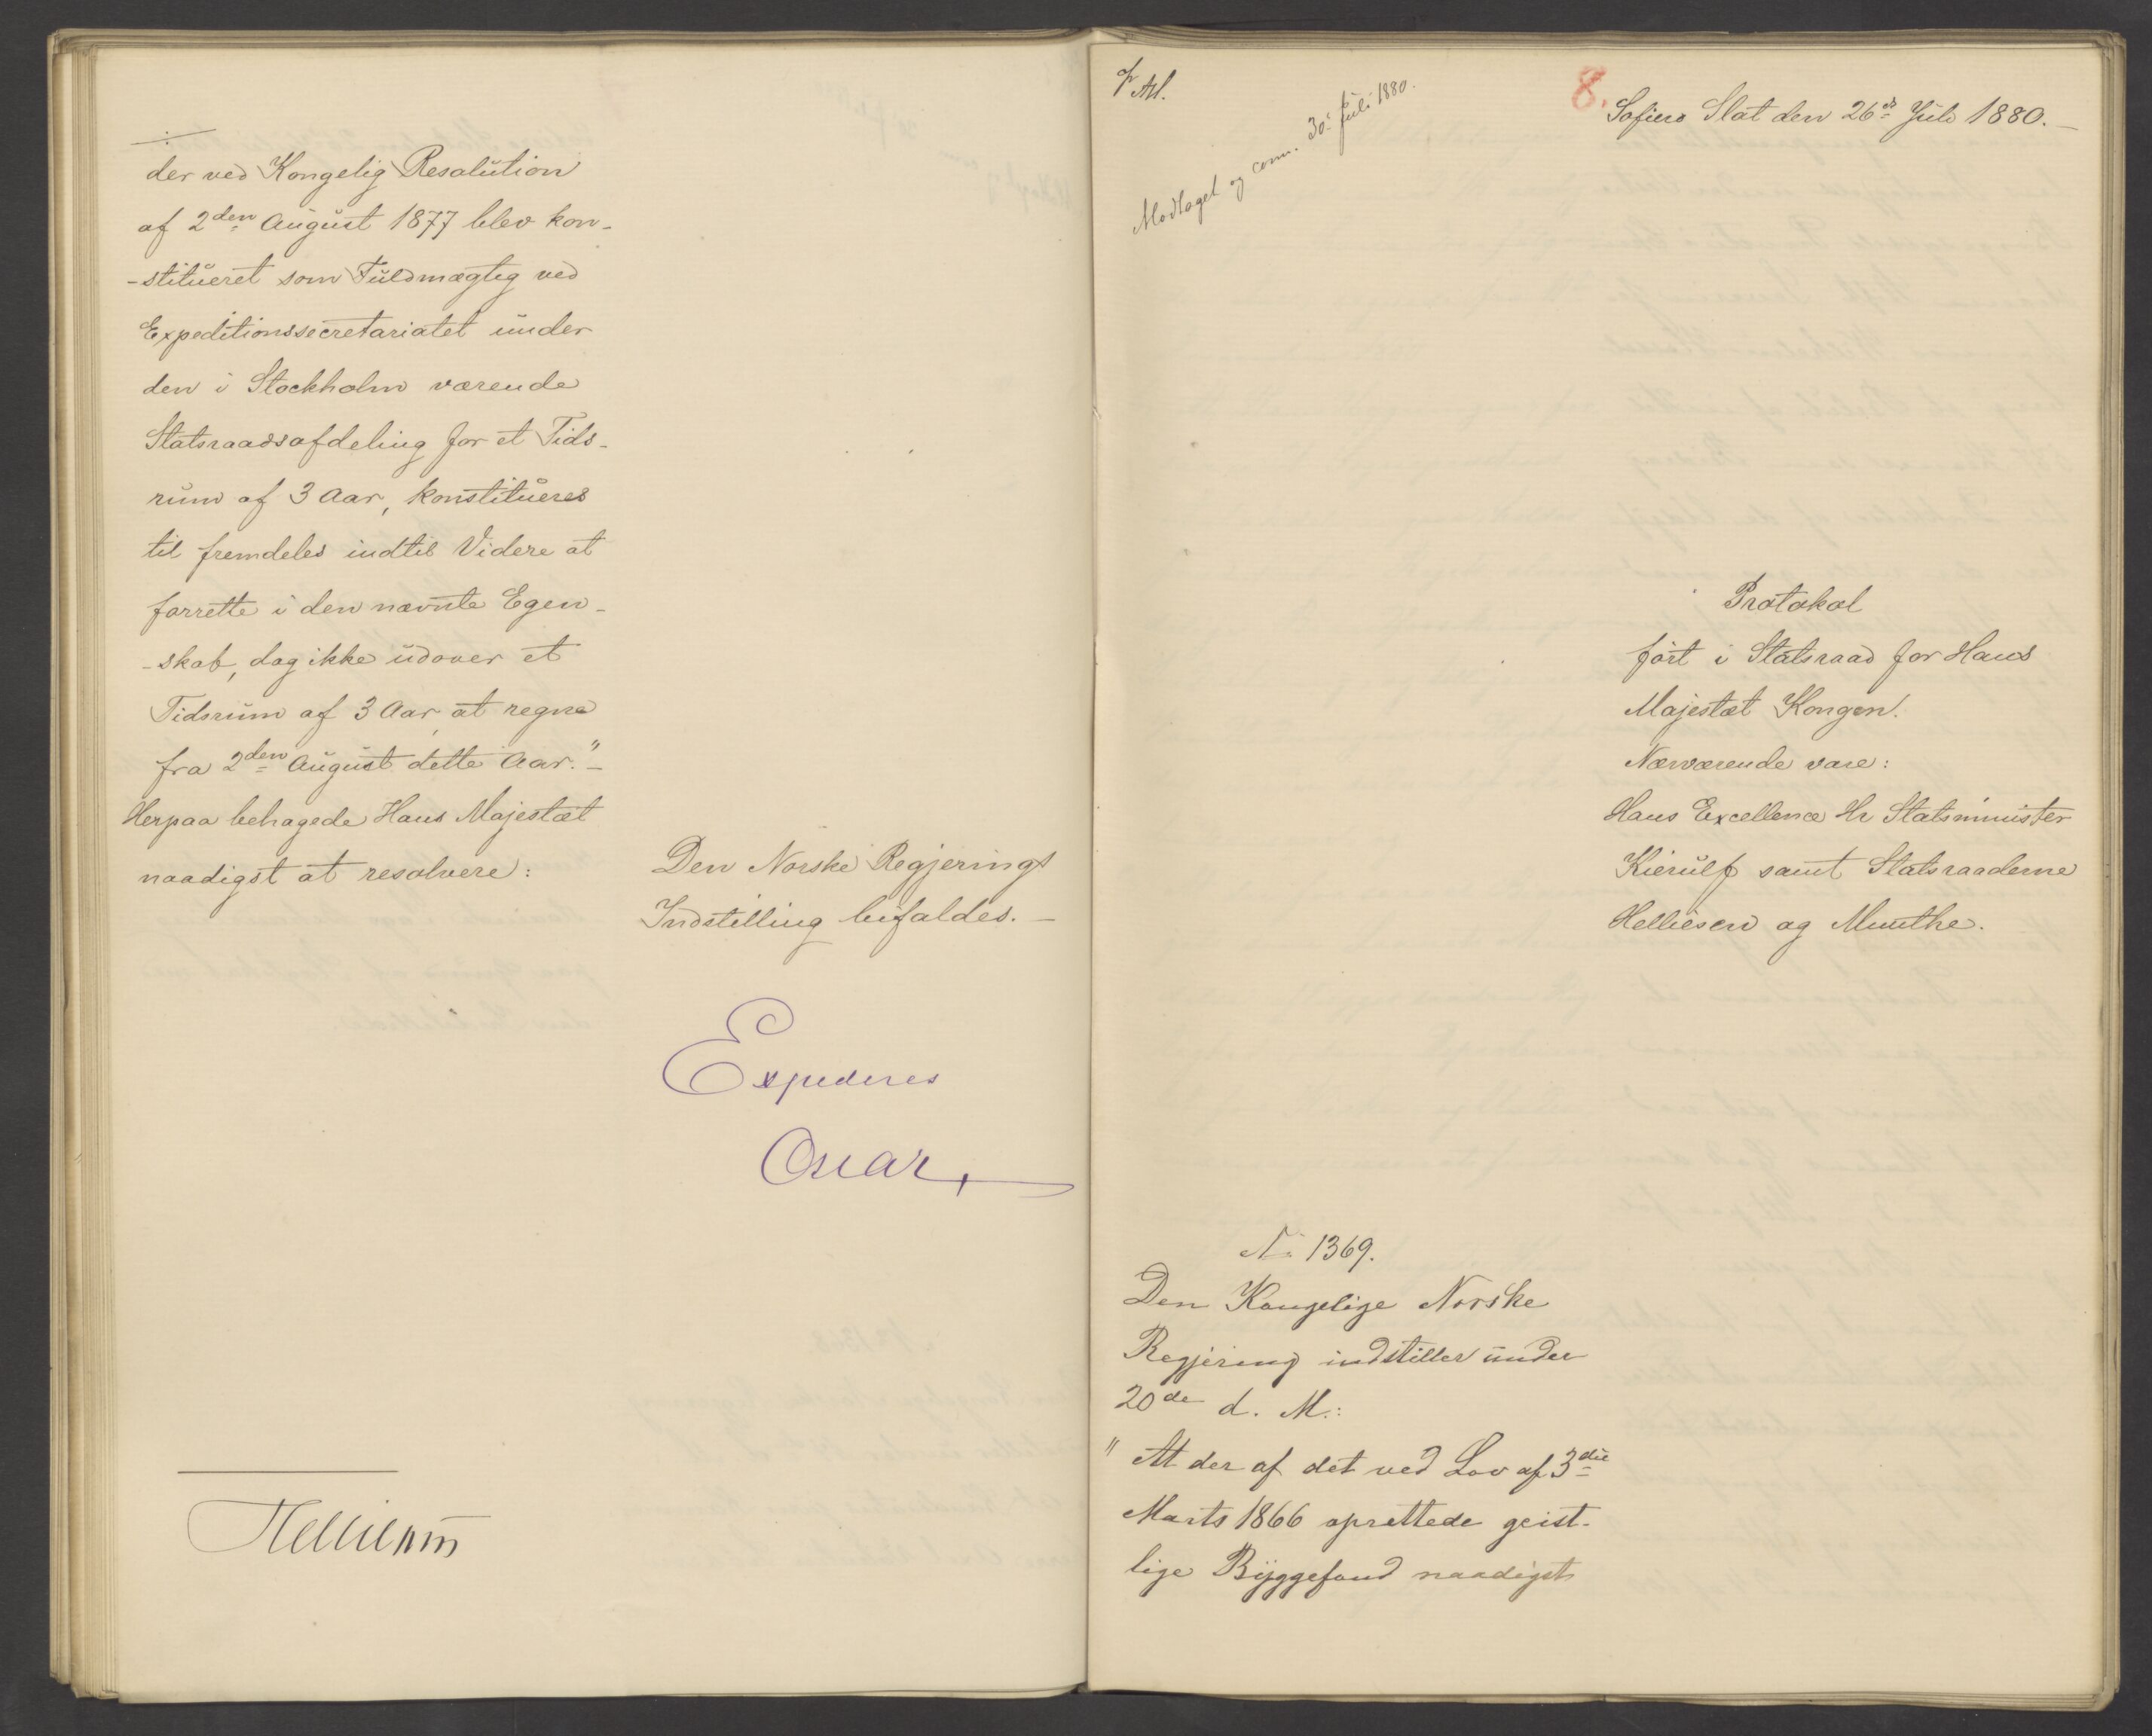 der ved Kongelig Resolution
af 2den August 1877 blev kon-
-stitueret som Fuldmægtig ved
Expeditionssecretariatet under
den i Stockholm værende
Statsraadsafdeling for et Tids-
rum af 3 Aar, konstitueres
til fremdeles indtil Videre at
forrette i den nævnte Egen-
-skab, dog ikke udover et
Tidsrum af 3 Aar, at regne
fra 2den August dette Aar." –
Herpaa behagede Hans Majestæt
naadigst at resolvere:
Den Norske Regjerings
Indstilling bifaldes. –
Expederes
Oscar
Helliesen
Modtaget og comm. 30. Juli 1880.
8.
Sofiero Slot den 26de Juli 1880. –
Protokol
ført i Statsraad for Hans
Majestæt Kongen.
Nærværende vare:
Hans Excellence Hr Statsminister
Kierulf samt Statsraaderne
Helliesen og Munthe.
No 1369.
Den Kongelige Norske
Regjering indstiller under
20de d. M.:
"At der af det ved Lov af 3die
Marts 1866 oprettede geist-
lige Byggefond naadigst